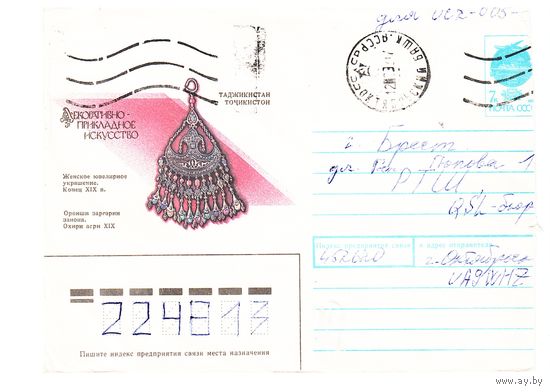 для UC2-005-
ТАДЖИКИСТАН
ТОҶИКИСТОН
ДЕКОРАТИВНО-
ПРИКЛАДНОЕ
ИСКУССТВО
Женское ювелирное
украшение.
Конец XIX в.
Ороиши заргарии
занона.
Охири асри XIX
7
ПОЧТА СССР
г. Брест
Попова 1
РТШ
QSL-бюро
Индекс предприятия связи и адрес отправителя
452620
г. Октябрьск
UA9WHZ
224813
Пишите индекс предприятия связи места назначения
www.ay.by